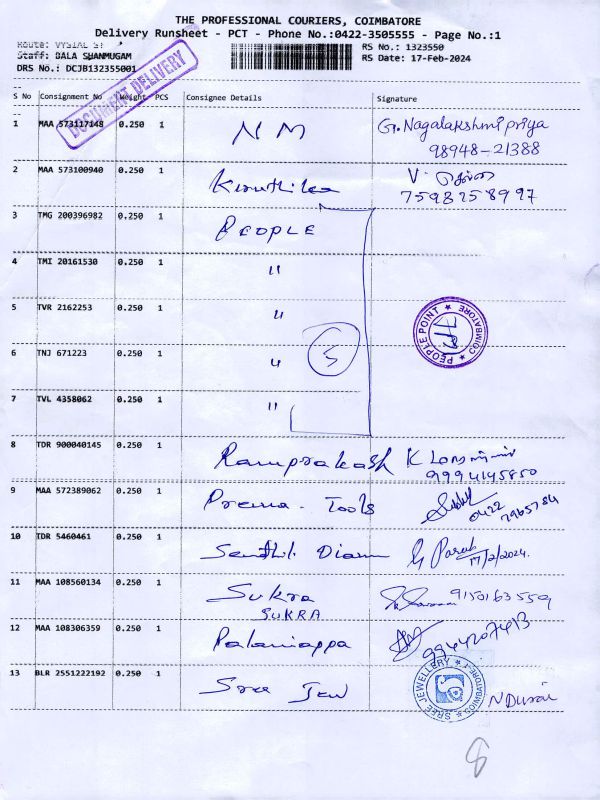 THE PROFESSIONAL COURIERS, COIMBATORE
Delivery Runsheet - PCT - Phone No.:0422-3505555 - Page No.:1
Route: VYSIAL ST
RS No.: 1323550
Staff: BALA SHANMUGAM
RS Date: 17-Feb-2024
DRS No.: DCJB132355001
DOCUMENT DELIVERY
S No Consignment No Weight PCS Consignee Details Signature
1 MAA 573117148 0.250 1 N M G. Nagalakshmi priya
98948-21388
2 MAA 573100940 0.250 1 Kiruthika V.
7598258997
3 TMG 200396982 0.250 1 PEOPLE
4 TMI 20161530 0.250 1 "
5 TVR 2162253 0.250 1 "
PEOPLE POINT ★ COIMBATORE ★
6 TNJ 671223 0.250 1 " 5
7 TVL 4358062 0.250 1 "
8 TDR 900040145 0.250 1 Ramprakash K
9994145850
9 MAA 572389062 0.250 1 Prema. Tools
0422
2965784
10 TDR 5460461 0.250 1 Senthil Diam
17/2/2024.
11 MAA 108560134 0.250 1 Sukra 9150163559
SUKRA
12 MAA 108306359 0.250 1 Palaniappa
9944207413
13 BLR 2551222192 0.250 1 Sree Jew N Durai
SREE JEWELLERY ★ COIMBATORE-1 ★
8